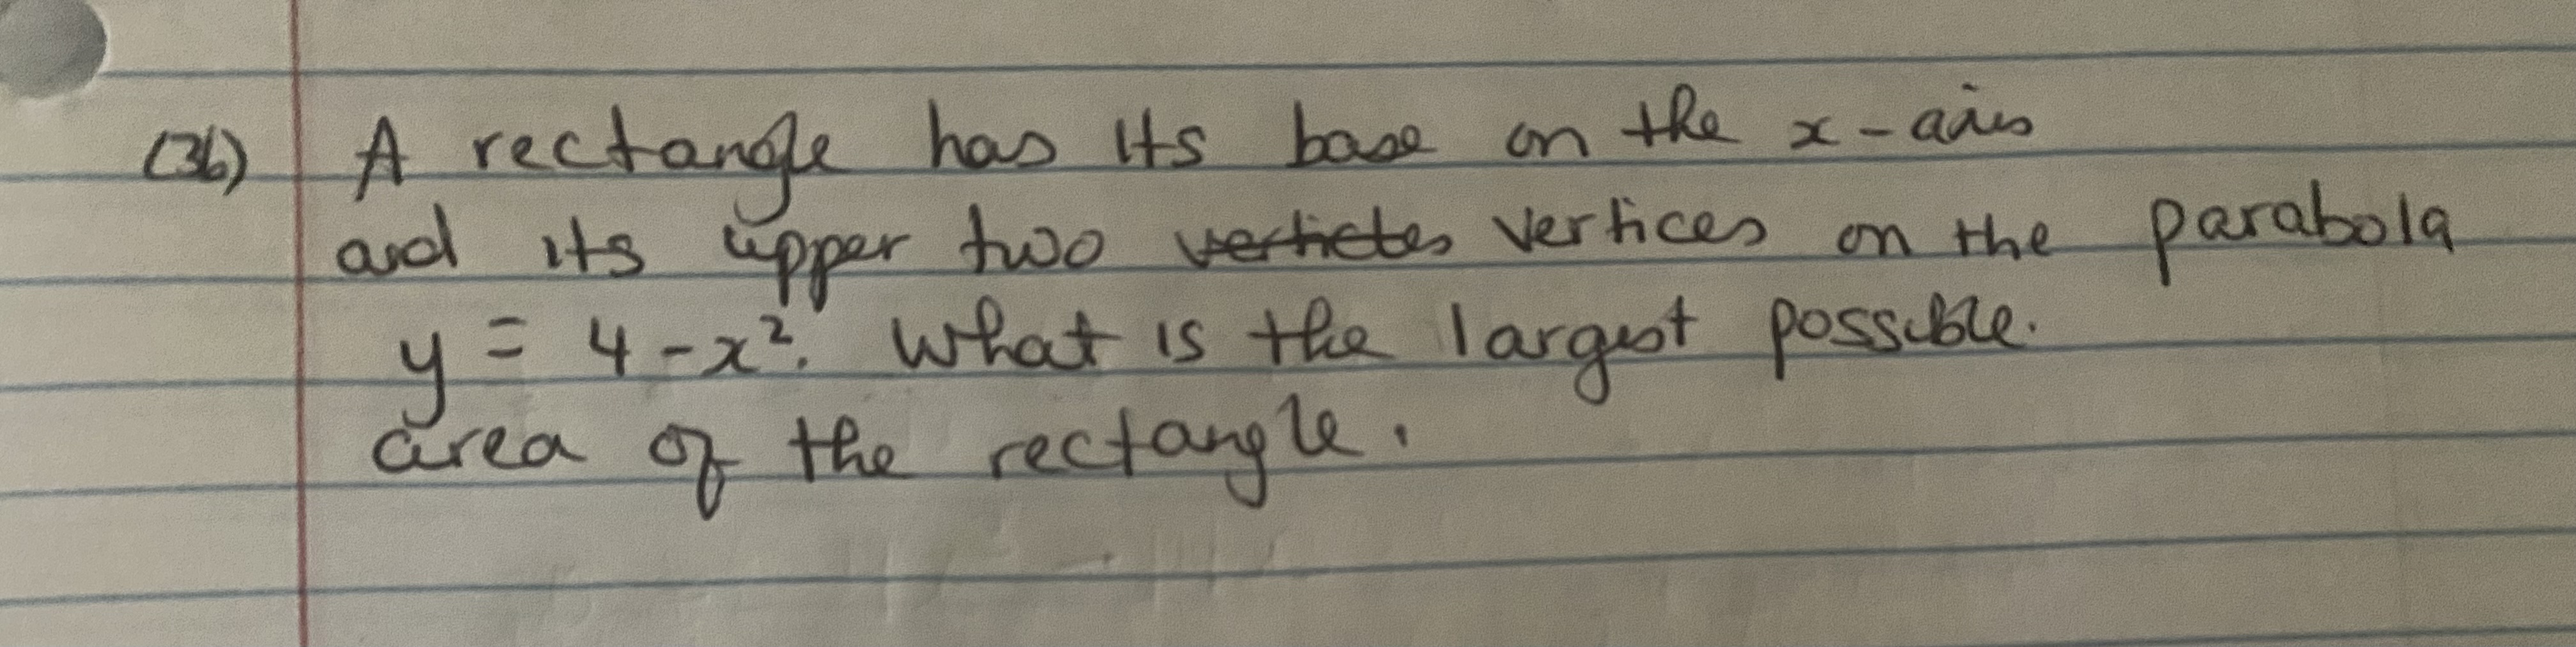 (36) A rectangle has its base on the x-axis
and its upper two vertictes vertices on the parabola
y = 4-x². What is the largest possible.
area of the rectangle.